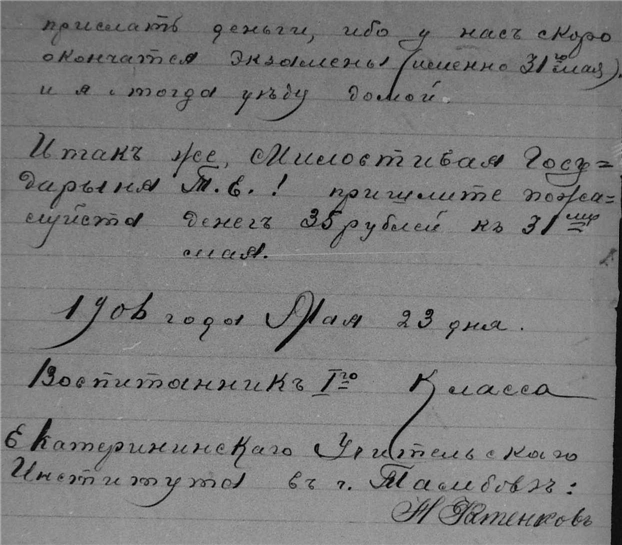 прислать деньги, ибо у насъ скоро
окончатся экзамены (именно 31го мая).
и я тогда уѣду домой.
Итакъ же, Милостивая Госу=
дарыня Т. Е.! пришлите пожа=
луйста денегъ 35 рублей къ 31му
мая.
1906 года Мая 23 дня.
Воспитанникъ Iго Класса
Екатерининскаго Учительскаго
Института въ г. Тамбовѣ:
Н Фатенковъ